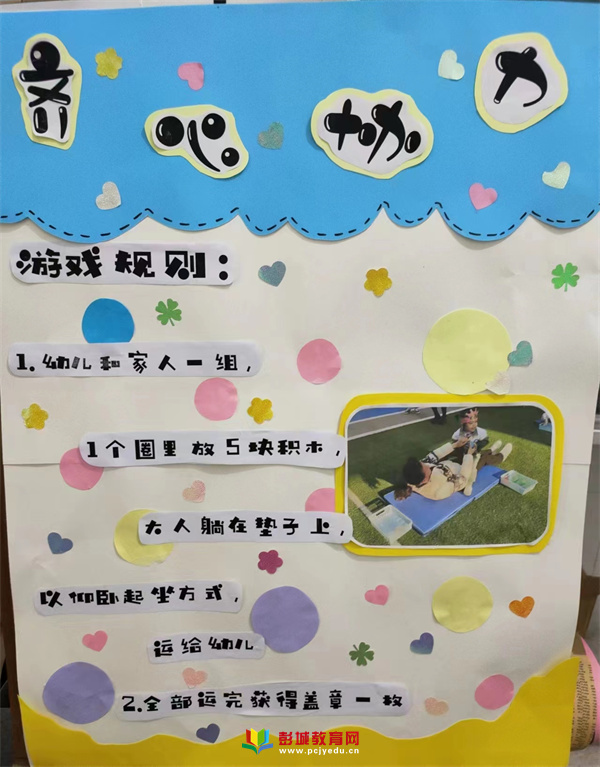 齐心协力
游戏规则:
1.幼儿和家人一组,
1个圈里放5块积木,
大人躺在垫子上,
以仰卧起坐方式,
运给幼儿
2.全部运完获得盖章一枚
彭城教育网
www.pcjyedu.cn